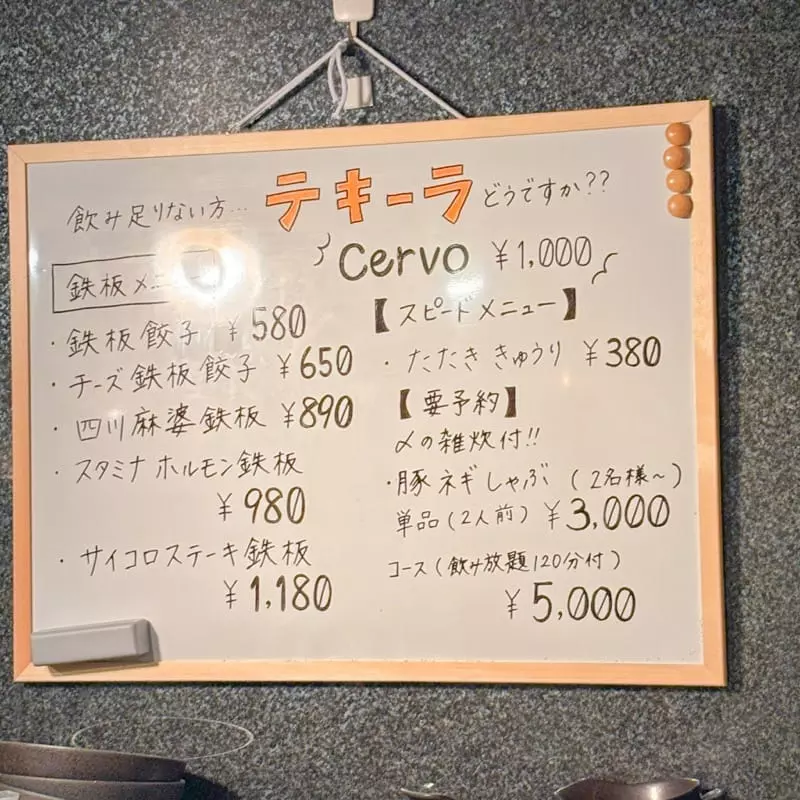 飲み足りない方… テキーラ どうですか??
Cervo ¥1,000
鉄板メニ
・鉄板餃子 ¥580
・チーズ鉄板餃子 ¥650
・四川麻婆鉄板 ¥890
・スタミナホルモン鉄板
¥980
・サイコロステーキ鉄板
¥1,180
【スピードメニュー】
・たたききゅうり ¥380
【要予約】
〆の雑炊付!!
・豚ネギしゃぶ (2名様~)
単品(2人前) ¥3,000
コース(飲み放題120分付)
¥5,000